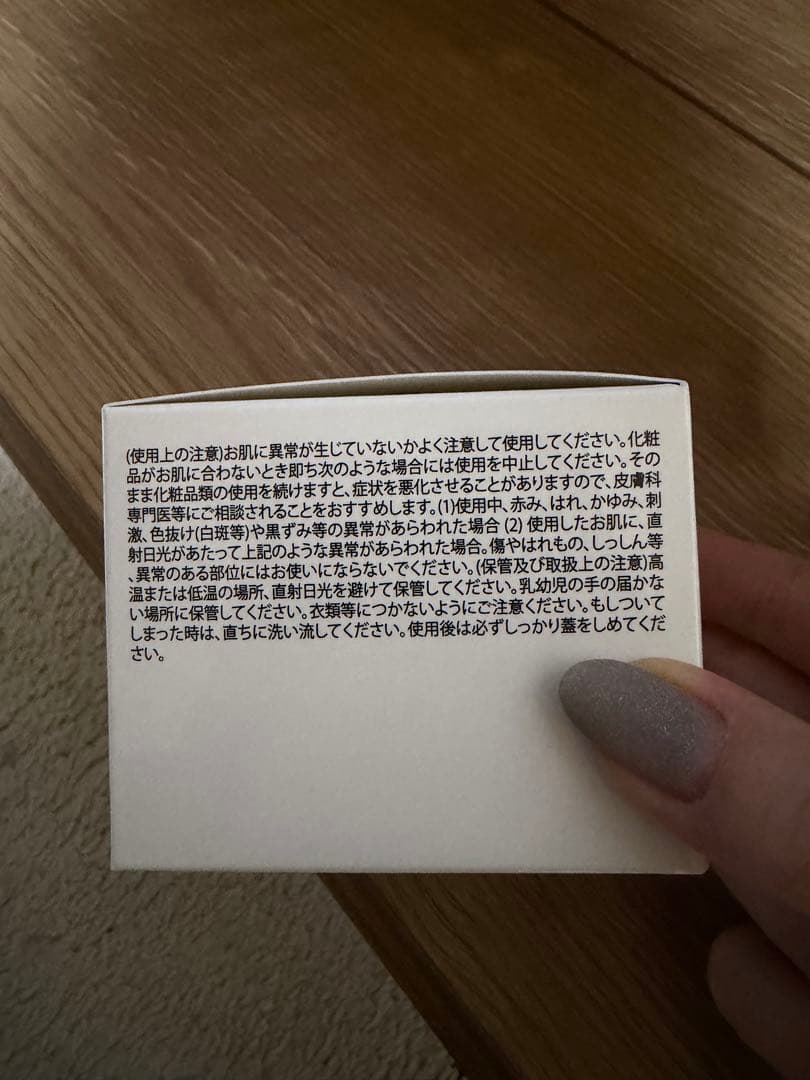 (使用上の注意)お肌に異常が生じていないかよく注意して使用してください。化粧
品がお肌に合わないとき即ち次のような場合には使用を中止してください。その
まま化粧品類の使用を続けますと、症状を悪化させることがありますので、皮膚科
専門医等にご相談されることをおすすめします。(1)使用中、赤み、はれ、かゆみ、刺
激、色抜け(白斑等)や黒ずみ等の異常があらわれた場合 (2) 使用したお肌に、直
射日光があたって上記のような異常があらわれた場合。傷やはれもの、しっしん等
、異常のある部位にはお使いにならないでください。(保管及び取扱上の注意)高
温または低温の場所、直射日光を避けて保管してください。乳幼児の手の届かな
い場所に保管してください。衣類等につかないようにご注意ください。もしついて
しまった時は、直ちに洗い流してください。使用後は必ずしっかり蓋をしめてくだ
さい。